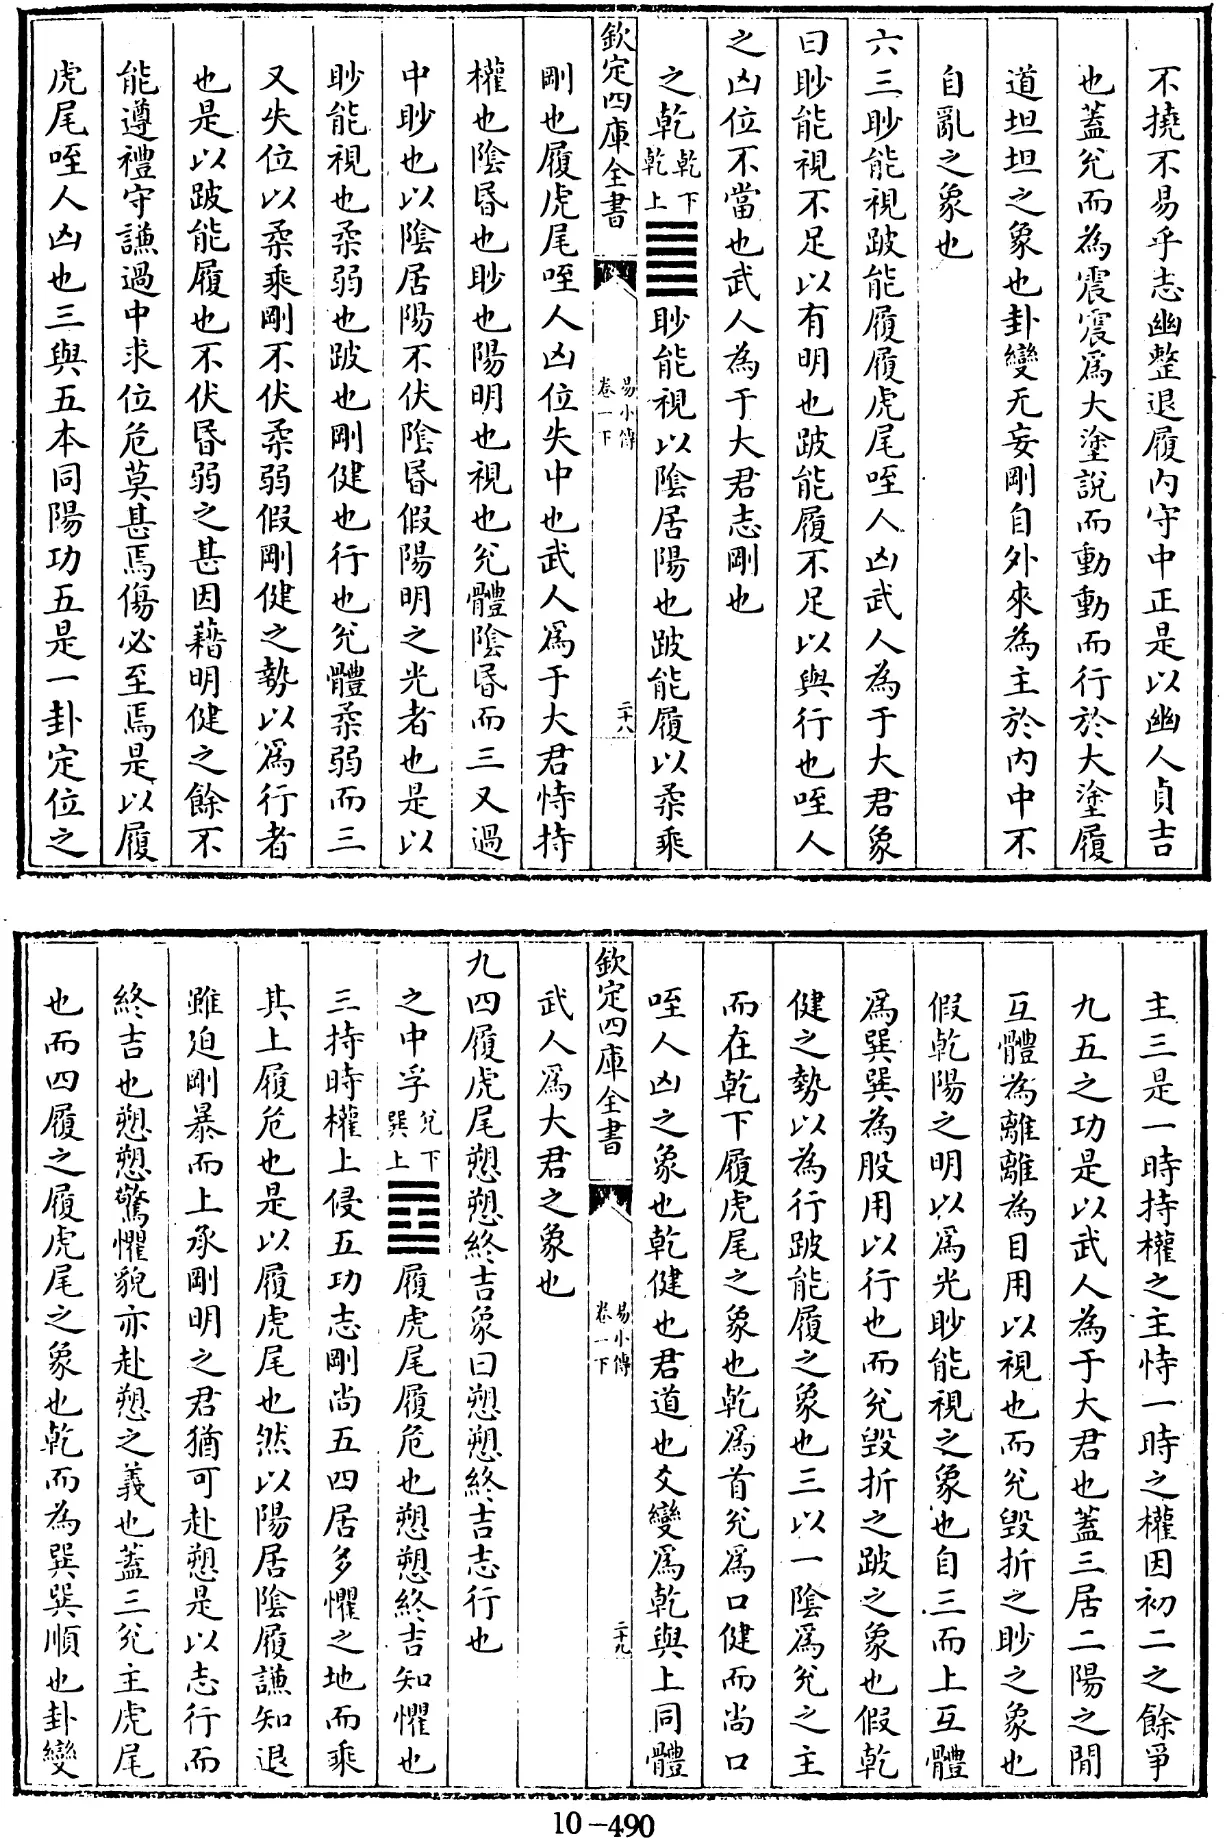 不撓不易乎志幽整退履内守中正是以幽人貞吉
也蓋兊而為震震爲大塗說而動動而行於大塗履
道坦坦之象也卦變无妄剛自外來為主於内中不
自亂之象也
六三眇能視跛能履履虎尾咥人凶武人為于大君象
曰眇能視不足以有明也跛能履不足以與行也咥人
之凶位不當也武人為于大君志剛也
之乾乾下乾上䷀眇能視以陰居陽也跛能履以柔乘
欽定四庫全書 易小傳卷一下 二十八
剛也履虎尾咥人凶位失中也武人爲于大君恃持
權也陰昏也眇也陽明也視也兊體陰昏而三又過
中眇也以陰居陽不伏陰昏假陽明之光者也是以
眇能視也柔弱也跛也剛健也行也兊體柔弱而三
又失位以柔乘剛不伏柔弱假剛健之勢以爲行者
也是以跛能履也不伏昏弱之甚因藉明健之餘不
能遵禮守謙過中求位危莫甚焉傷必至焉是以履
虎尾咥人凶也三與五本同陽功五是一卦定位之
主三是一時持權之主恃一時之權因初二之餘爭
九五之功是以武人為于大君也蓋三居二陽之閒
互體為離離為目用以視也而兊毁折之眇之象也
假乾陽之明以爲光眇能視之象也自三而上互體
爲巽巽為股用以行也而兊毁折之跛之象也假乾
健之勢以為行跛能履之象也三以一陰爲兊之主
而在乾下履虎尾之象也乾爲首兊爲口健而尚口
咥人凶之象也乾健也君道也爻變爲乾與上同體
欽定四庫全書 易小傳卷一下 二十九
武人爲大君之象也
九四履虎尾愬愬終吉象曰愬愬終吉志行也
之中孚兊下巽上䷼履虎尾履危也愬愬終吉知懼也
三持時權上侵五功志剛尚五四居多懼之地而乘
其上履危也是以履虎尾也然以陽居陰履謙知退
雖迫剛暴而上承剛明之君猶可赴愬是以志行而
終吉也愬愬驚懼貌亦赴愬之義也蓋三兊主虎尾
也而四履之履虎尾之象也乾而為巽巽順也卦變
10-490